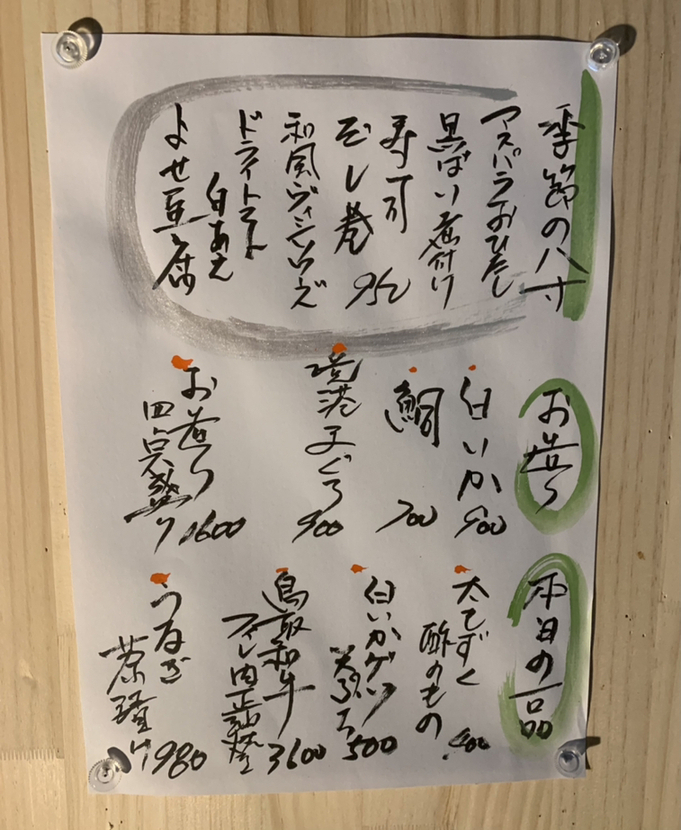 季節の八寸
アスパラおひたし
黒ばい煮付け
寿司
だし巻
950
和風
ドライトマト
白あえ
よせ豆腐
お造り
白いか
900
鯛
700
境港まぐろ
900
お造り
四点盛り
1600
本日の一品
太もずく
酢のもの
白いかゲソ
天ぷら
500
鳥取和牛
フィレ肉
3600
うなぎ
茶
980